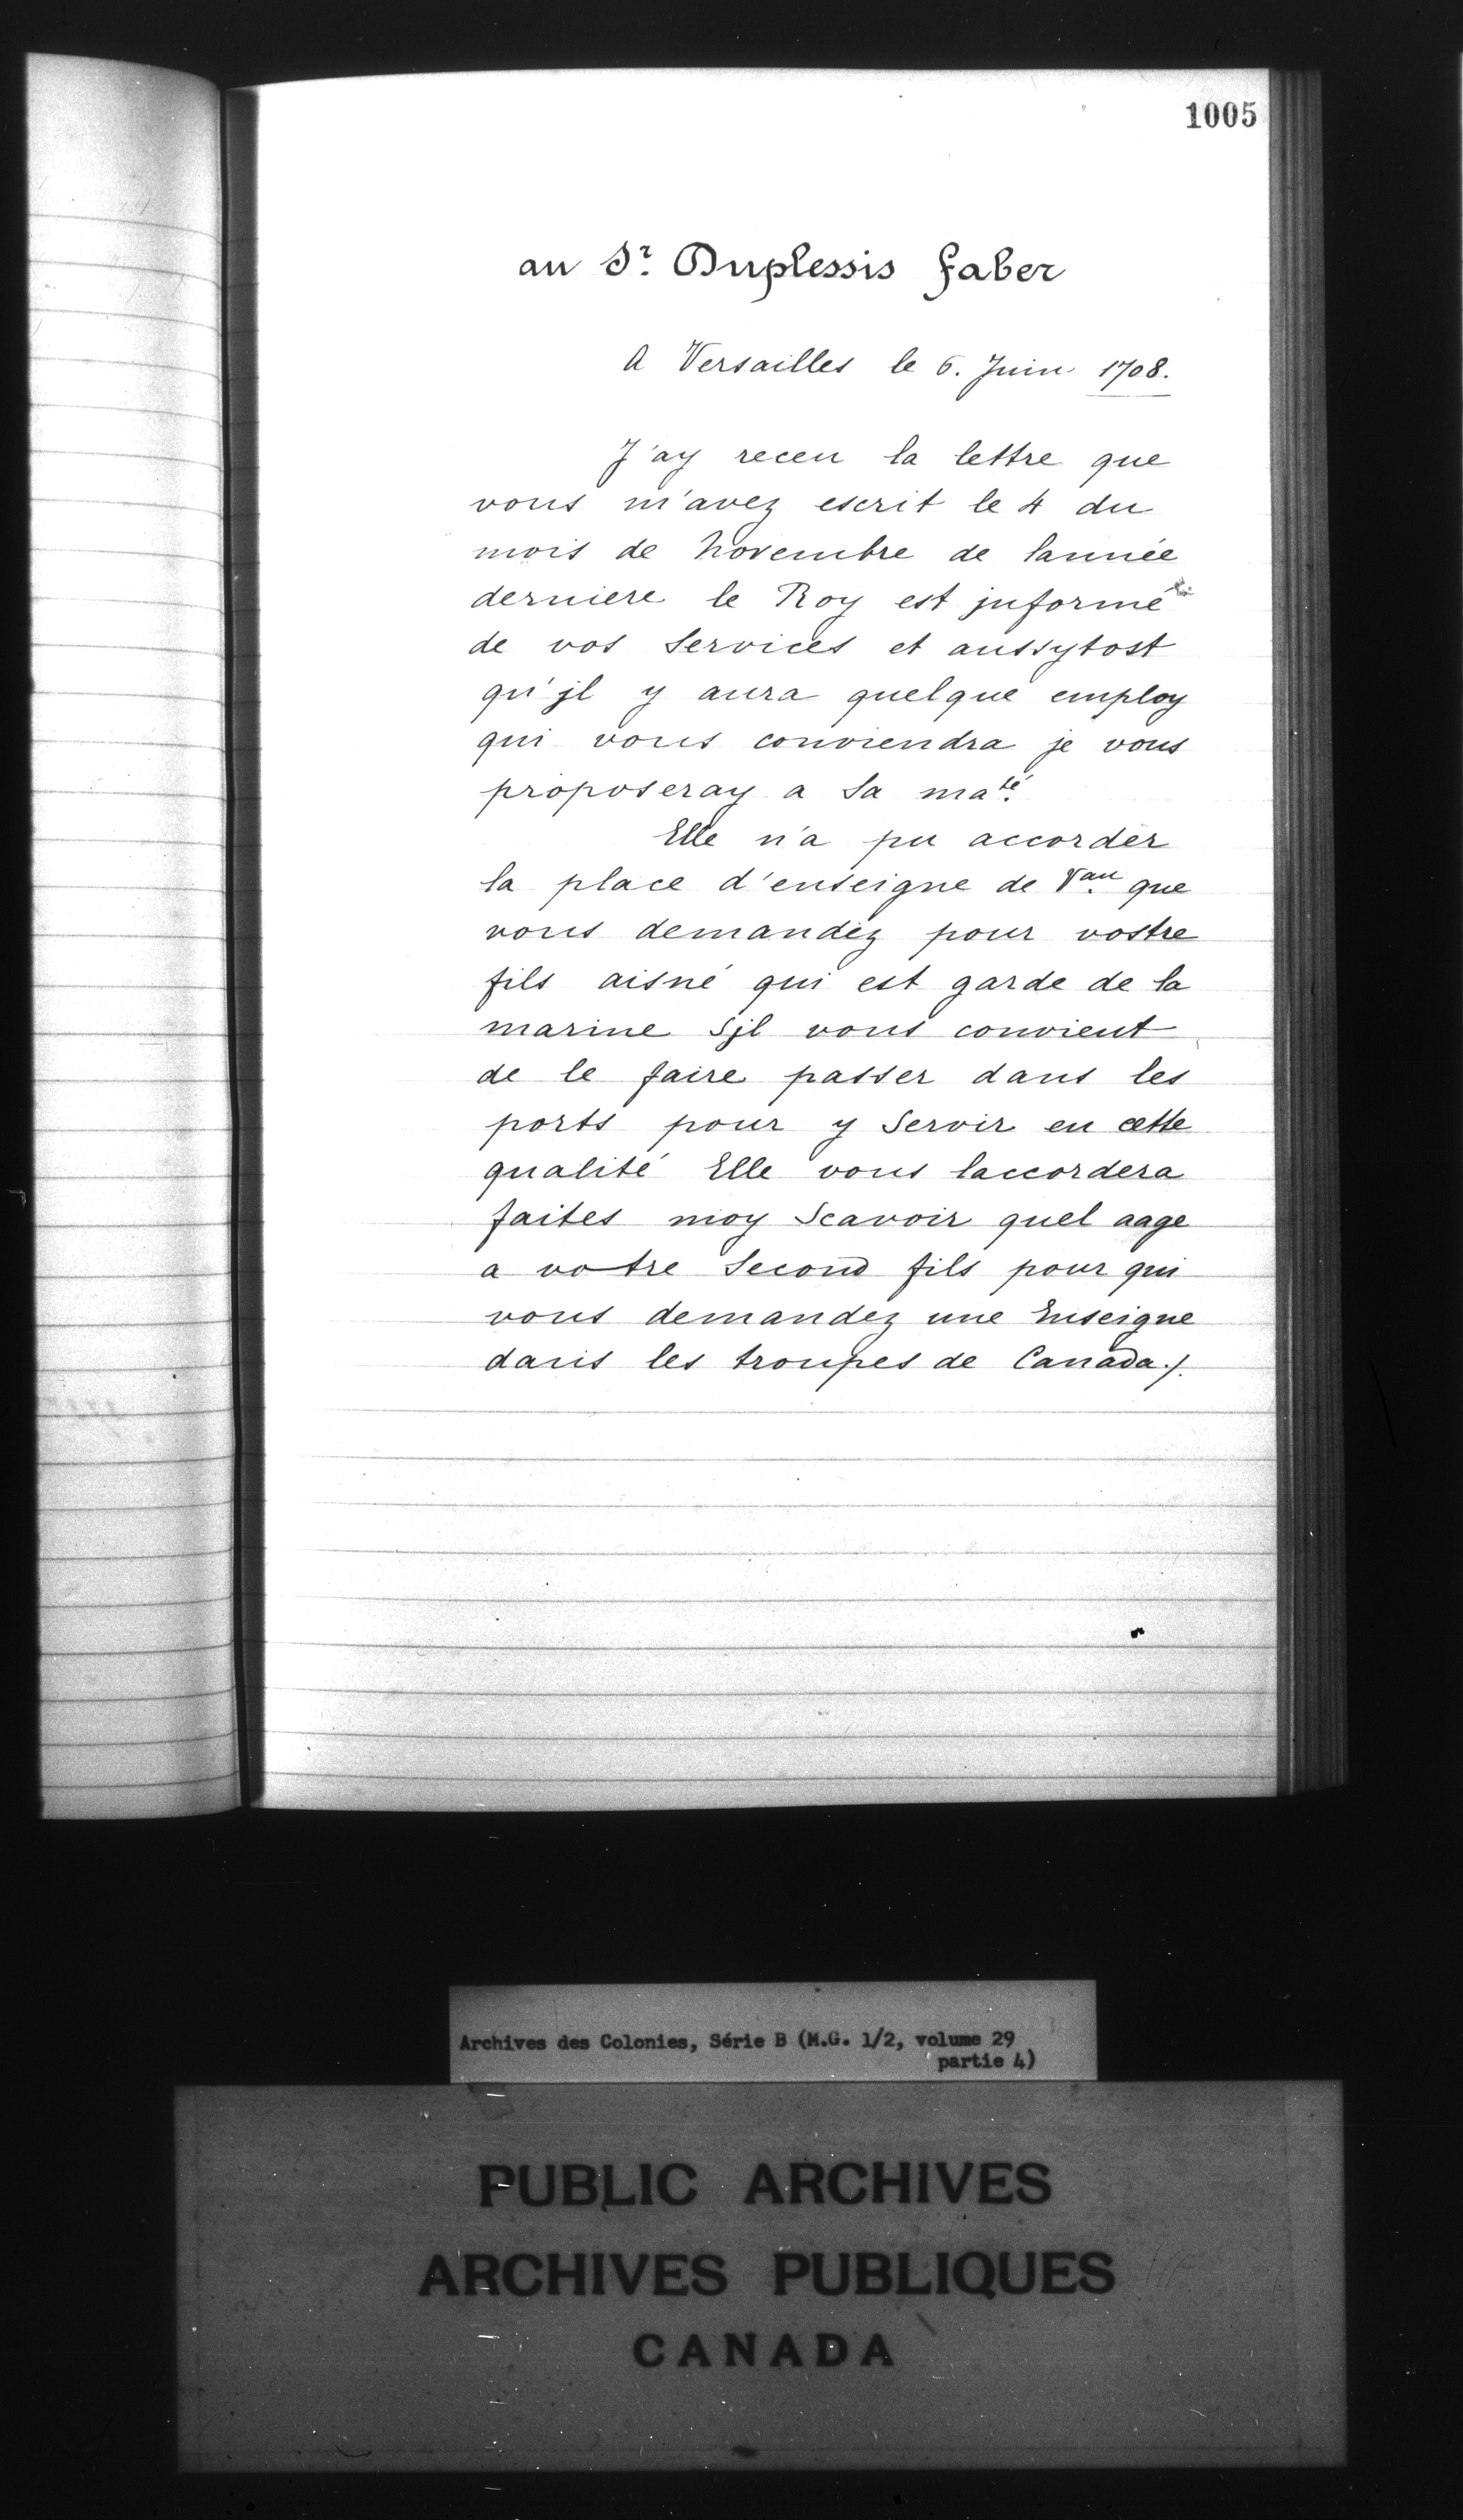 1005
au Sr. Duplessis faber
A Versailles le 6. Juin 1708.
J'ay receu la lettre que
vous m'avez escrit le 4 du
mois de Novembre de lannée
derniere le Roy est jnformé
de vos Services et aussytost
qu'jl y aura quelque employ
qui vous conviendra je vous
proposeray a Sa maté.
Elle n'a pu accorder
la place d'enseigne de Vau. que
vous demandez pour vostre
fils aisné qui est garde de la
marine Sjl vous convient
de le faire passer dans les
ports pour y Servir en cette
qualité Elle vous laccordera
faites moy Scavoir quel aage
a votre Second fils pour qui
vous demandez une Enseigne
dans les troupes de Canada./.
Archives des Colonies, Série B (M.G. 1/2, volume 29
partie 4)
PUBLIC ARCHIVES
ARCHIVES PUBLIQUES
CANADA